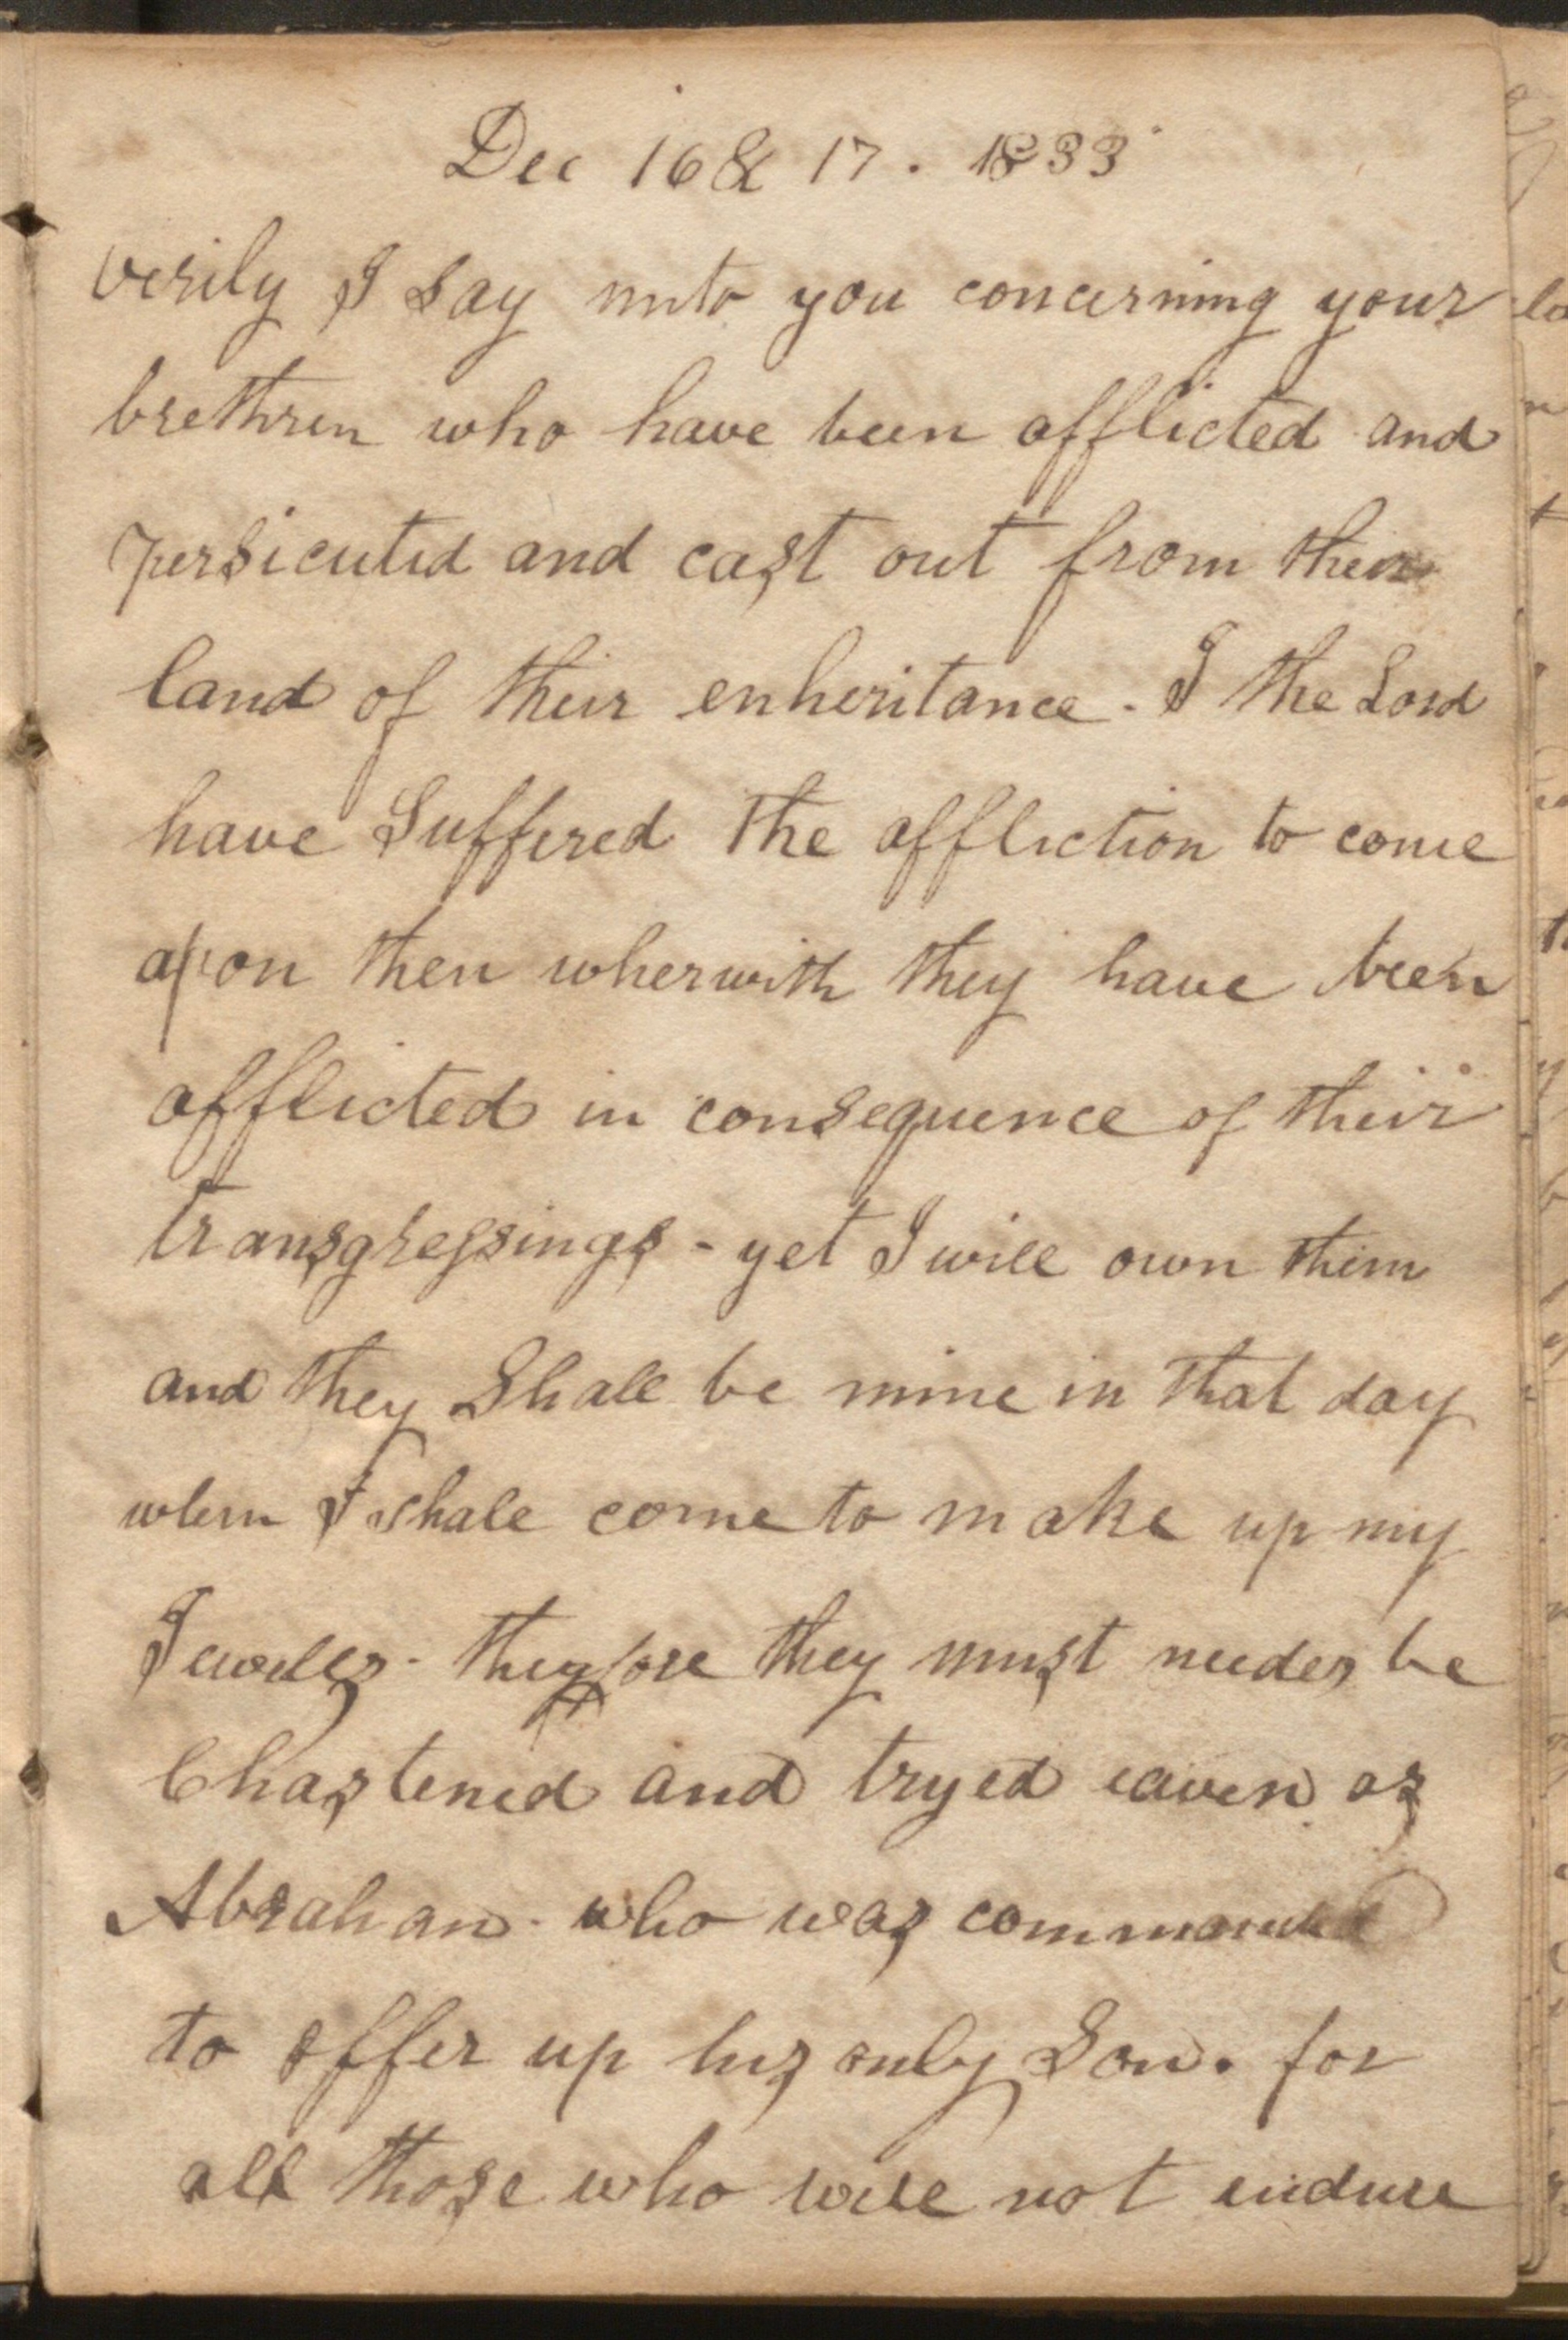 Dec 16 & 17. 1833
verily I say unto you concerning your
brethren who have been afflicted and
persicuted and cast out from their
land of their enheritance. I the Lord
have Suffered the affliction to come
apon then wherwith they have been
afflicted in consequence of their
transgressings - yet I will own them
and they Shall be mine in that day
when I shall come to make up my
Jeweles. therefore they must needes be
Chastened and tryed eaven as
Abrahan. who was commanded
to offer up his only Son. for
all those who will not endure